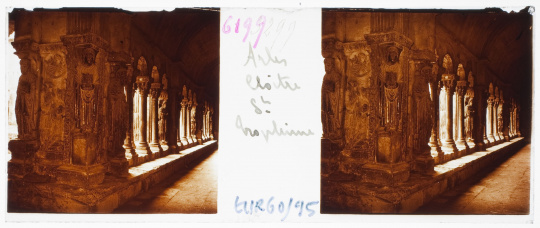 6199
Arles
Cloître
St
Trophime
EUR60/95